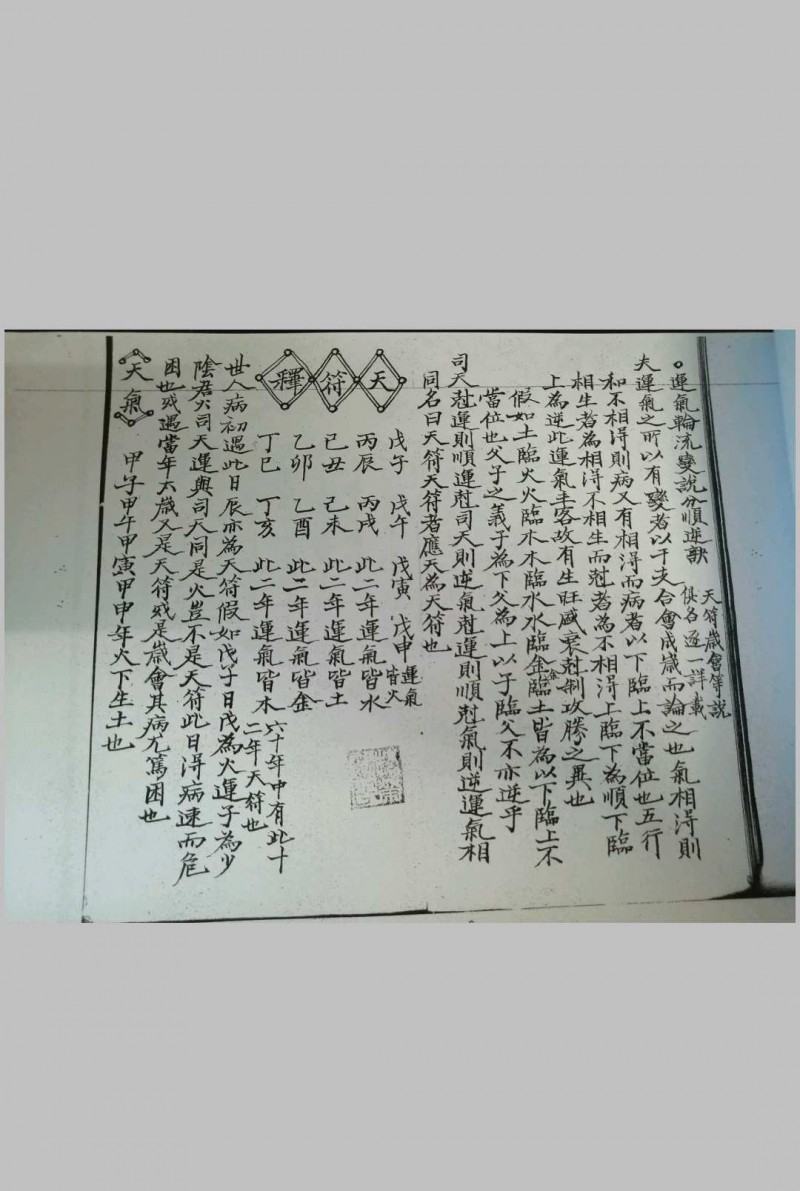 運氣輪流變說分順逆訣
天符歲會等說
俱各逐一詳載
夫運氣之所以有變者以干支合會成歲而論之也氣相得則
和不相得則病又有相得而病者以下臨上不當位也五行
相生者為相得不相生而尅者為不相得上臨下為順下臨
上為逆此運氣主客故有生旺盛衰尅制攻勝之異也
假如土臨火火臨木木臨水水臨金金臨土皆為以下臨上不
當位也父子之義子為下父為上以子臨父不亦逆乎
司天尅運則順運尅司天則逆氣尅運則順尅氣則逆運氣相
同名曰天符天符者應天為天符也
天符釋
戊子 戊午 戊寅 戊申 運氣皆火
丙辰 丙戌 此二年運氣皆水
己丑 己未 此二年運氣皆土
乙卯 乙酉 此二年運氣皆金
丁巳 丁亥 此二年運氣皆木
六十年中有此十
二年天符也
世人病初遇此日辰亦為天符假如戊子日戊為火運子為少
陰君火司天運與司天同是火豈不是天符此日得病速而危
困也或遇當年太歲又是天符或是歲會其病尤篤困也
天氣
甲子甲午甲寅甲申年火下生土也